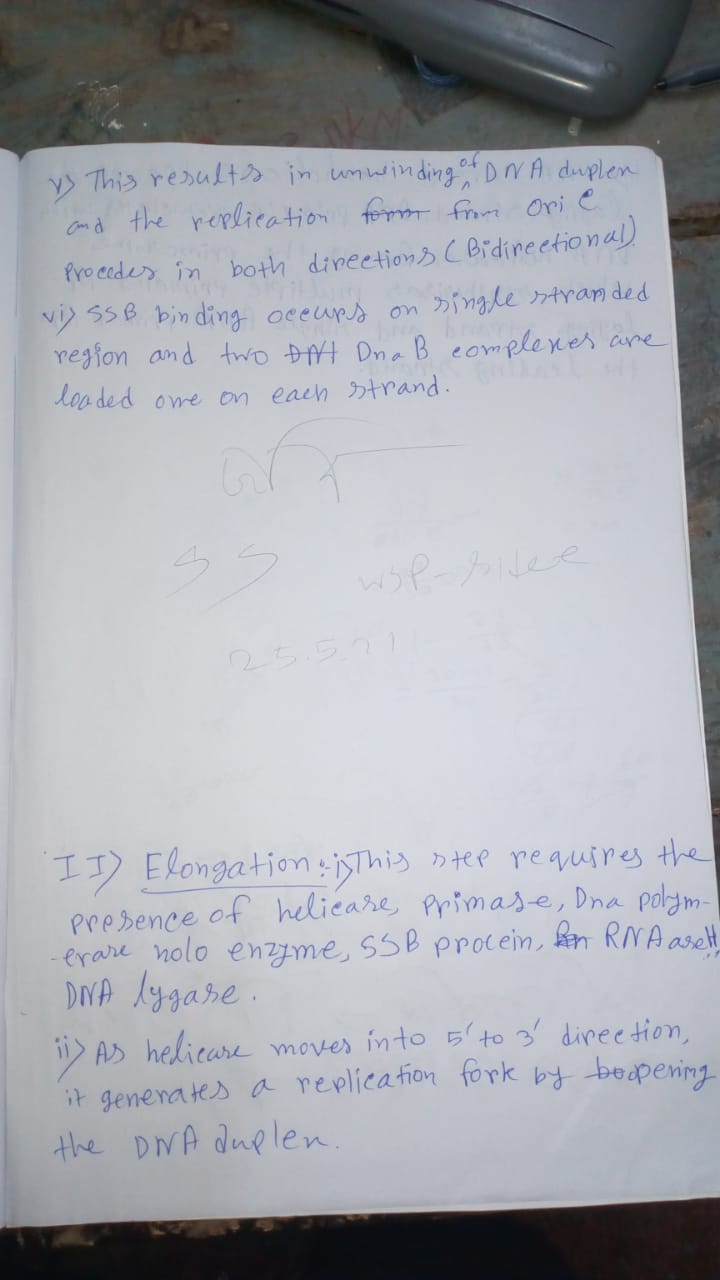 v) This results in unwinding of DNA duplen
and the replication form from Ori C
procedes in both directions (Bidirectional)
vi) SSB binding occurs on single stranded
region and two DNA DnaB complexes are
loaded one on each strand.
SS
25.5.21
II) Elongation :- i) This step requires the
presence of helicase, primase, Dna polym-
-erase holo enzyme, SSB procein, RNAaseH,
DNA lygase.
ii) As helicase moves into 5' to 3' direction,
it generates a replication fork by opening
the DNA duplen.